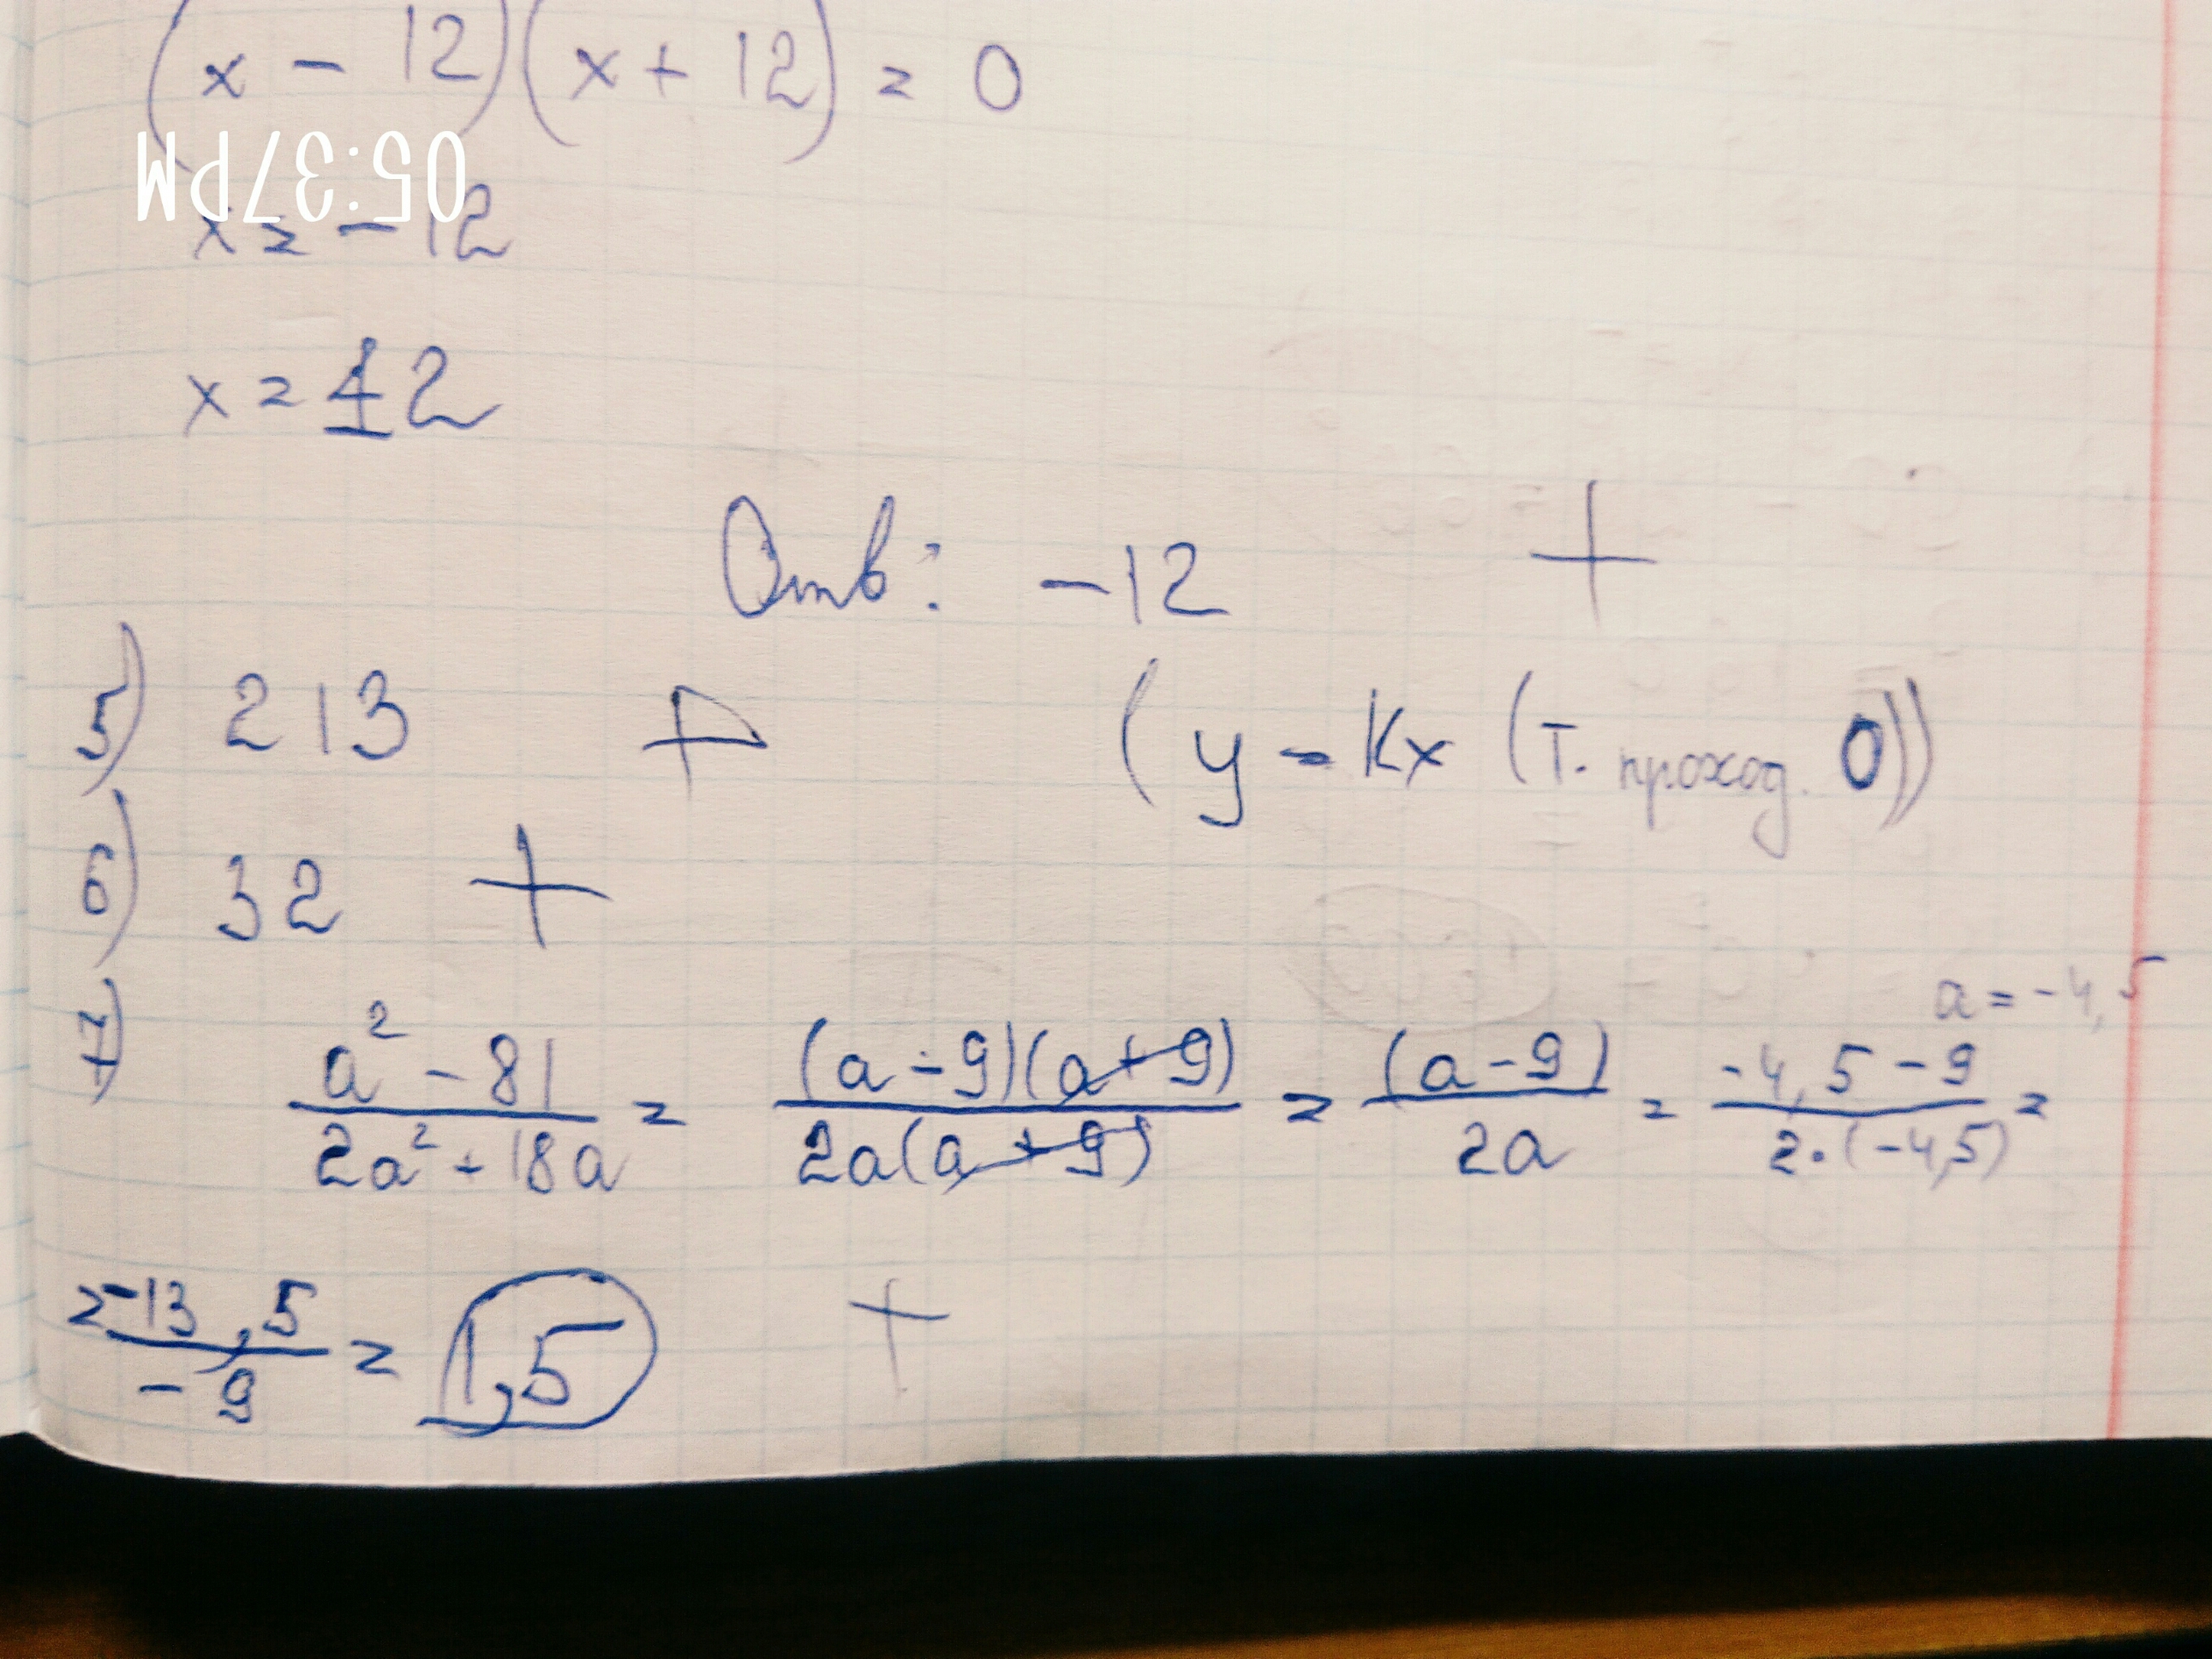 (x - 12)(x + 12) = 0
05:37PM
x = -12
x = 12
Отв: -12 +
5) 213 + (y = kx (т. проход. 0))
6) 32 +
a = -4,5
7) (a² - 81)/(2a² + 18a) = ((a - 9)(a + 9))/(2a(a + 9)) = (a - 9)/(2a) = (-4,5 - 9)/(2·(-4,5)) =
= (-13,5)/(-9) = 1,5 +